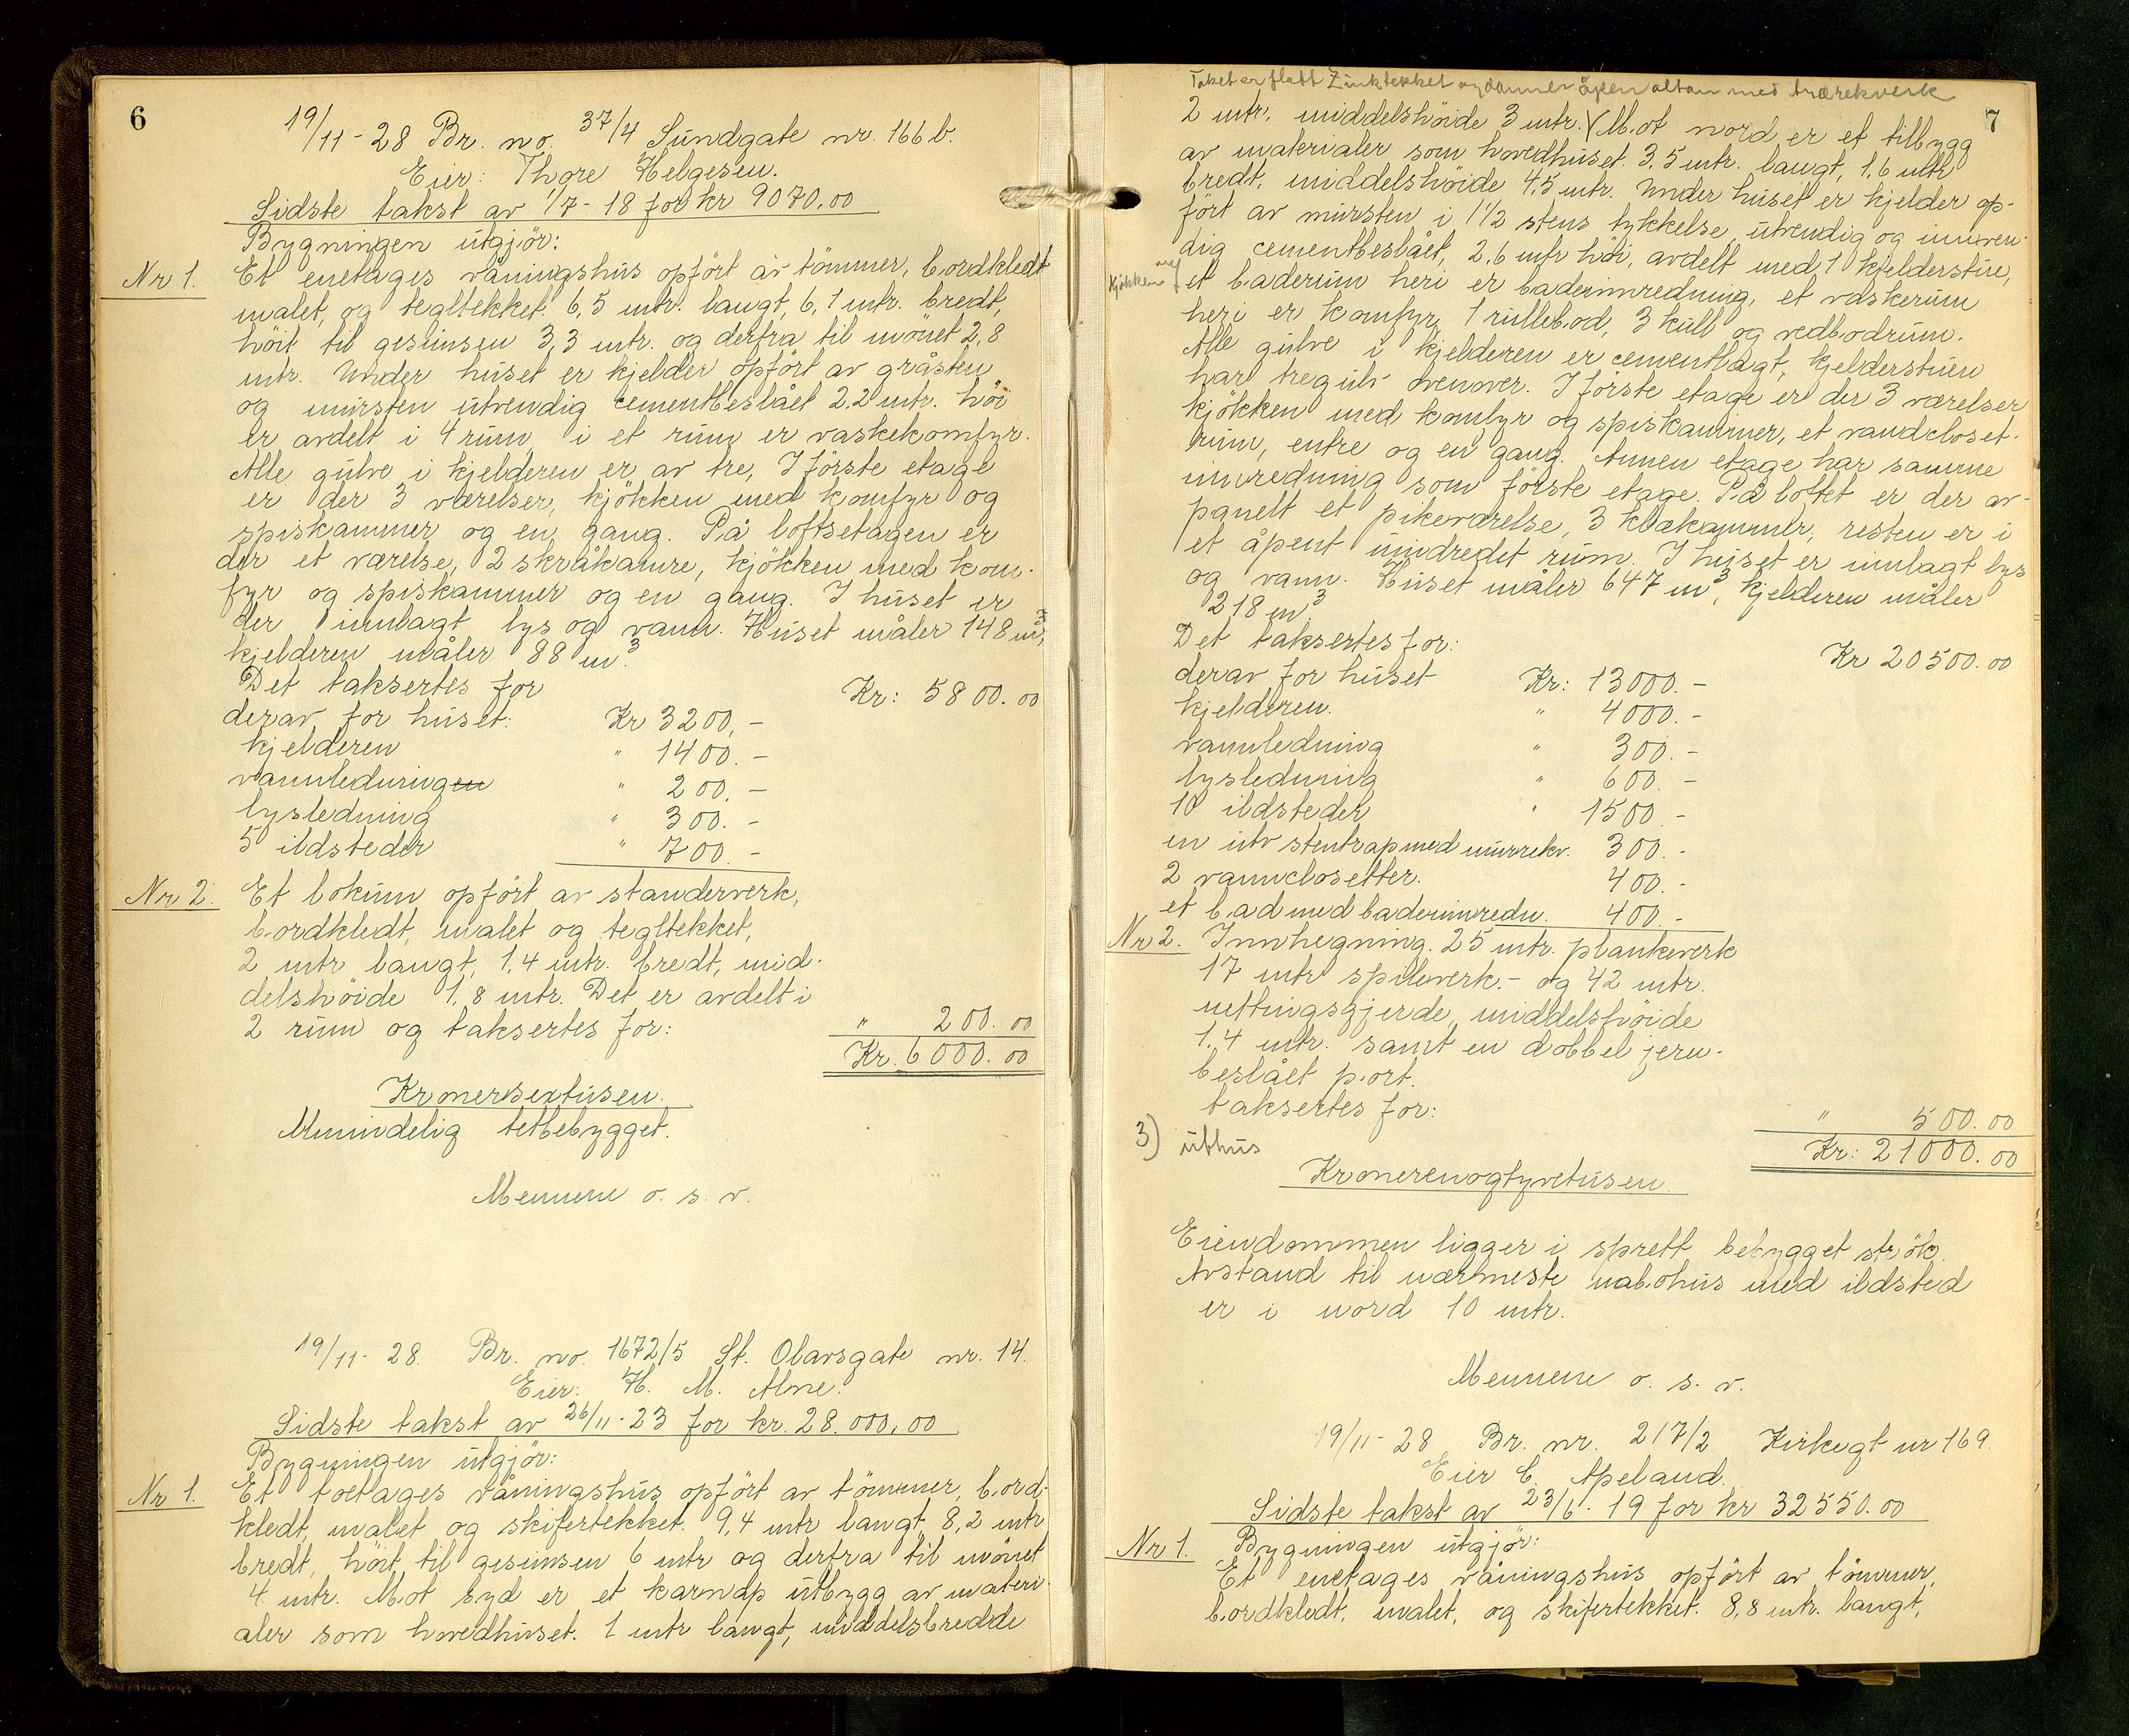 6
19/11-28 Br. no. 37/4 Sundgate nr. 166 b.
Eier: Thore Helgesen.
Sidste takst av 1/7-18 for kr 9070.00
Bygningen utgjör:
Nr 1. Et enetages våningshus opfört av tömmer, bordkledt
malet, og tegltekket. 6,5 mtr. langt, 6,1 mtr. bredt,
höit til gesimsen 3,3 mtr. og derfra til mönet 2,8
mtr. Under huset er kjelder opfört av gråsten
og mursten utvendig cementbeslået 2.2 mtr. höi
er avdelt i 4 rum, i et rum er vaskekomfyr.
Alle gulve i kjelderen er av tre, I förste etage
er der 3 værelser, kjökken med komfyr og
spiskammer og en gang. På loftsetagen er
der et værelse, 2 skråkamre, kjökken med kom-
fyr og spiskammer og en gang. I huset er
der innlagt lys og vann. Huset måler 148 m³,
kjelderen måler 88 m³.
Det taksertes for Kr: 5800.00
derav for huset: Kr 3200,-
kjelderen " 1400.-
vannledningen " 200.-
lysledning " 300.-
5 ildsteder " 700.-
Nr 2. Et lokum opfört av standerverk,
bordkledt, malet og tegltekket,
2 mtr langt, 1,4 mtr. bredt, mid-
delshöide 1,8 mtr. Det er avdelt i
2 rum og taksertes for: " 200.00
Kr. 6000.00
Kronersextusen.
Almindelig tetbebygget.
Mennene o. s. v.
19/11-28. Br. no. 1672/5 St. Olavsgate nr. 14.
Eier: H. M. Alne.
Sidste takst av 26/11-23 for kr. 28.000,00
Bygningen utgjör:
Nr 1. Et toetages våningshus opfört av tömmer, bord-
kledt, malet og skifertekket. 9,4 mtr langt, 8,2 mtr
bredt, höit til gesimsen 6 mtr og derfra til mönet
4 mtr. Mot syd er et karnap utbygg av materi-
aler som hovedhuset. 1 mtr langt, middelsbredde
7
Taket er flatt Zinktekket og danner åpen altan med trærekverk
2 mtr, middelshöide 3 mtr. V Mot nord er et tilbygg
av materialer som hovedhuset. 3,5 mtr. langt, 1,6 mtr
bredt, middelshöide 4,5 mtr. Under huset er kjelder op-
fört av mursten i 1 1/2 stens tykkelse, utvendig og innven-
dig cementbeslået, 2,6 mtr höi, avdelt med, 1 kjelderstue,
kjökken et baderum heri er badeinnredning, et vaskerum
heri er komfyr, 1 rullebod, 3 kull og vedbodrum.
Alle gulve i kjelderen er cementlagt, kjelderstuen
har tregulv ovenover. I förste etage er der 3 værelser
kjökken med komfyr og spiskammer, et vandcloset-
rum, entre og en gang. Annen etage har samme
innredning som förste etage. På loftet er der av-
panelt et pikeværelse, 3 klækammer, resten er i
et åpent uindredet rum. I huset er innlagt lys
og vann. Huset måler 647 m³, kjelderen måler
218 m³
Det taksertes for: Kr 20500.00
derav for huset Kr: 13000.-
kjelderen. " 4000.-
vannledning " 300.-
lysledning " 600.-
10 ildsteder " 1500.-
en utv stentrap med murrekv. 300.-
2 vannclosetter. 400.-
et bad med badeinnredn. 400.-
Nr 2. Innhegning. 25 mtr. plankeverk
17 mtr spileverk.- og 42 mtr.
nettingsgjerde, middelshöide
1,4 mtr. samt en dobbel jern-
beslået port.
taksertes for: " 500.00
3) uthus
Kr: 21000.00
Kronerenogtyvetusen
Eiendommen ligger i sprett bebygget strök.
Avstand til nærmeste nabohus med ildsted
er i nord 10 mtr.
Mennene o. s. v.
19/11-28 Br. nr. 217/2 Kirkegt nr 169.
Eier C. Apeland.
Sidste takst av 23/6-19 for kr 32550.00
Nr 1. Bygningen utgjör:
Et enetages våningshus opfört av tömmer,
bordkledt, malet, og skifertekket. 8,8 mtr. langt,